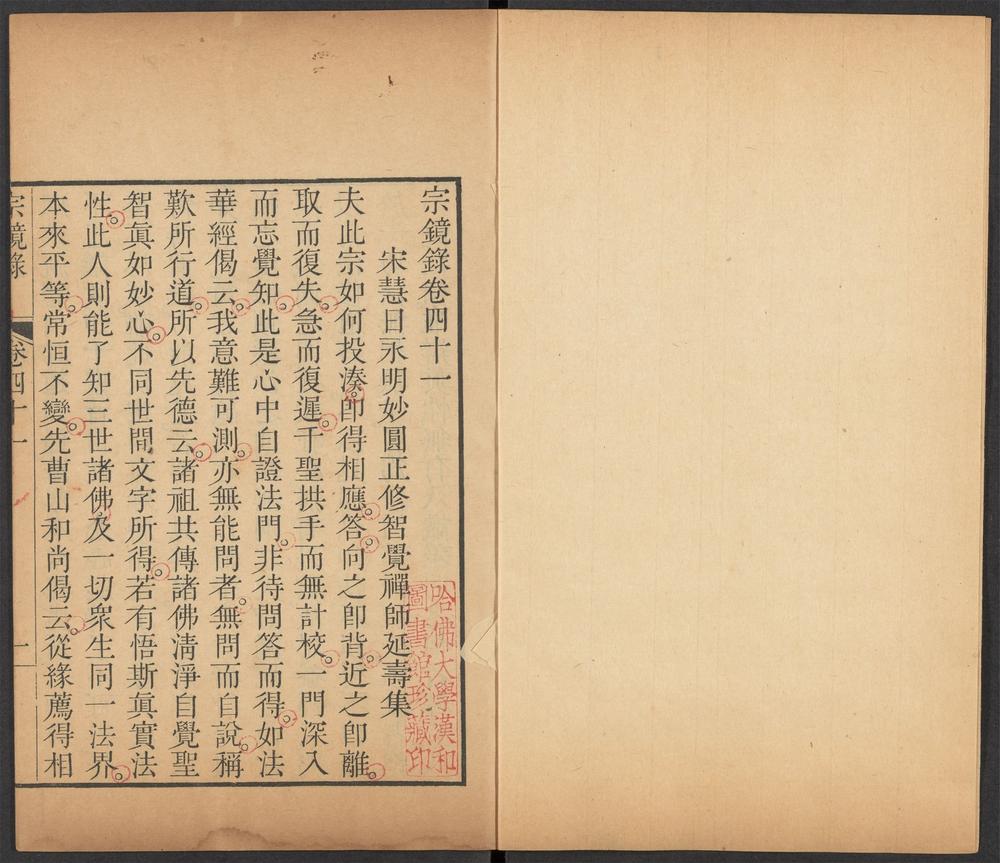 宗鏡錄卷四十一
宋慧日永明妙圓正修智覺禪師延壽集
夫此宗如何投湊即得相應答向之即背近之即離
取而復失急而復遲千聖拱手而無計校一門深入
而忘覺知此是心中自證法門非待問答而得如法
華經偈云我意難可測亦無能問者無問而自說稱
歎所行道所以先德云諸祖共傳諸佛清淨自覺聖
智眞如妙心不同世間文字所得若有悟斯眞實法
性此人則能了知三世諸佛及一切衆生同一法界
本來平等常恒不變先曹山和尚偈云從緣薦得相
宗鏡錄 卷四十一 一
哈佛大學漢和
圖書館珍藏印